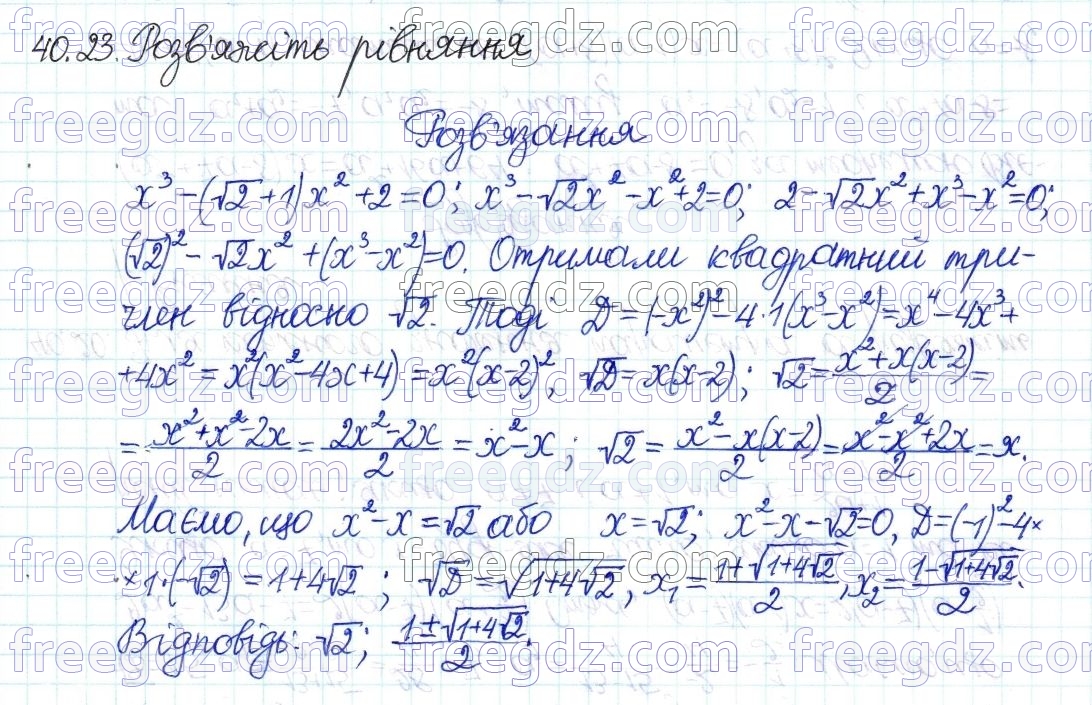 40.23. Розв'яжіть рівняння
Розв'язання
x³ – (√2 + 1)x² + 2 = 0; x³ – √2x² – x² + 2 = 0; 2 – √2x² + x³ – x² = 0;
(√2)² – √2x² + (x³ – x²) = 0. Отримали квадратний три-
член відносно √2. Тоді D = (–x²)² – 4·1(x³ – x²) = x⁴ – 4x³ +
+ 4x² = x²(x² – 4x + 4) = x²(x – 2)², √D = x(x – 2); √2 = (x² + x(x – 2))/2 =
= (x² + x² – 2x)/2 = (2x² – 2x)/2 = x² – x; √2 = (x² – x(x – 2))/2 = (x² – x² + 2x)/2 = x.
Маємо, що x² – x = √2 або x = √2; x² – x – √2 = 0, D = (–1)² – 4×
×1·(–√2) = 1 + 4√2; √D = √(1 + 4√2), x₁ = (1 + √(1 + 4√2))/2, x₂ = (1 – √(1 + 4√2))/2.
Відповідь: √2; (1 ± √(1 + 4√2))/2.
freegdz.com